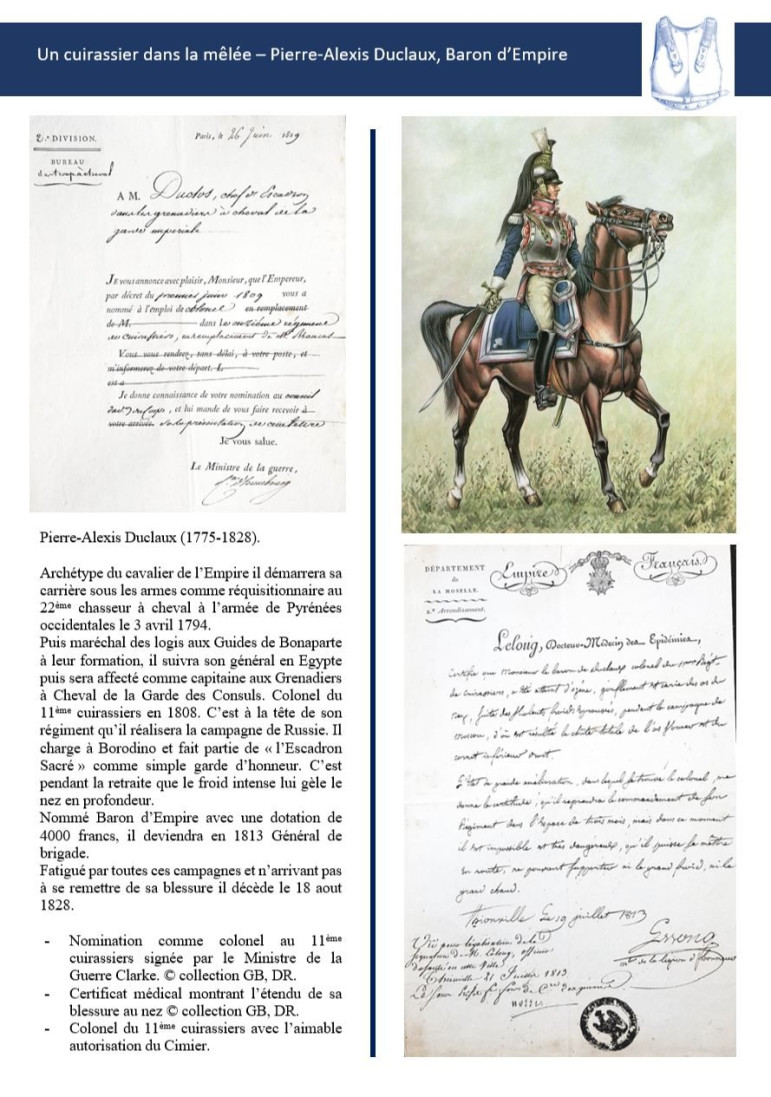 Un cuirassier dans la mêlée – Pierre-Alexis Duclaux, Baron d'Empire
2.e DIVISION.
Paris, le 26 Juin 1809
BUREAU
A M. Duclos, chef d'Escadron
dans les grenadiers à cheval de la
garde impériale
JE vous annonce avec plaisir, Monsieur, que l'Empereur,
par décret du premier juin 1809 vous a
nommé à l'emploi de colonel en remplacement
de M. dans le onzième régiment
de cuirassiers, en remplacement de M.
Vous vous rendrez, sans délai, à votre poste, et
m'informerez de votre départ.
Je donne connaissance de votre nomination au conseil
, et lui mande de vous faire recevoir à
votre arrivée. de cette lettre
Je vous salue.
Le Ministre de la guerre,
Pierre-Alexis Duclaux (1775-1828).
Archétype du cavalier de l'Empire il démarrera sa
carrière sous les armes comme réquisitionnaire au
22ème chasseur à cheval à l'armée de Pyrénées
occidentales le 3 avril 1794.
Puis maréchal des logis aux Guides de Bonaparte
à leur formation, il suivra son général en Egypte
puis sera affecté comme capitaine aux Grenadiers
à Cheval de la Garde des Consuls. Colonel du
11ème cuirassiers en 1808. C'est à la tête de son
régiment qu'il réalisera la campagne de Russie. Il
charge à Borodino et fait partie de « l'Escadron
Sacré » comme simple garde d'honneur. C'est
pendant la retraite que le froid intense lui gèle le
nez en profondeur.
Nommé Baron d'Empire avec une dotation de
4000 francs, il deviendra en 1813 Général de
brigade.
Fatigué par toutes ces campagnes et n'arrivant pas
à se remettre de sa blessure il décède le 18 aout
1828.
- Nomination comme colonel au 11ème
cuirassiers signée par le Ministre de la
Guerre Clarke. © collection GB, DR.
- Certificat médical montrant l'étendu de sa
blessure au nez © collection GB, DR.
- Colonel du 11ème cuirassiers avec l'aimable
autorisation du Cimier.
DÉPARTEMENT
de
LA MOSELLE.
Arrondissement.
Empire Français
Leloug, Docteur-Médecin des Epidémies,
Certifie que Monsieur le baron de duclaux colonel du 11eme Régt
de Cuirassiers, a été atteint d'ozène, gonflement et carie des os du
nez, suites des froids, pendant la campagne de
, d'où est résulté la chute totale de l'os et du
cornet inférieur droit.
L'état de grande amélioration, dans lequel se trouve le colonel, me
donne la certitude, qu'il reprendra le commandement de son
Régiment dans l'espace de trois mois, mais dans ce moment
il est impossible et très dangereux, qu'il puisse se mettre
en route, ne pouvant supporter ni le grand froid, ni le
grand chaud.
Thionville Le 19 juillet 1813
Vu pour légalisation de la
signature de M. Leloug, officier
de santé en cette Ville
Thionville 21 Juillet 1813
de la légion d'honneur